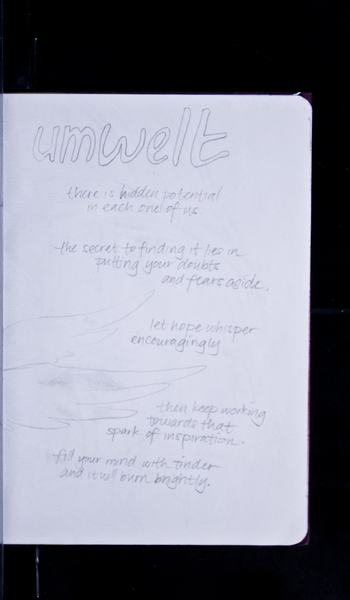 umwelt
there is hidden potential
in each one of us
the secret to finding it lies in
putting your doubts
and fears aside.
let hope whisper
encouragingly
then keep working
towards that
spark of inspiration.
fill your mind with tinder
and it will burn brightly.